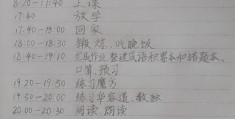 8:20-17:40 上课
17:40 放学
17:40-18:00 回家
18:00-18:30 锻炼、吃晚饭
18:40-19:10 完成作业、整理成语积累本和错题本、
口算、预习
19:20-19:50 练习魔方
19:50-20:00 练习华容道、数独
20:00-20:30 阅读、朗读